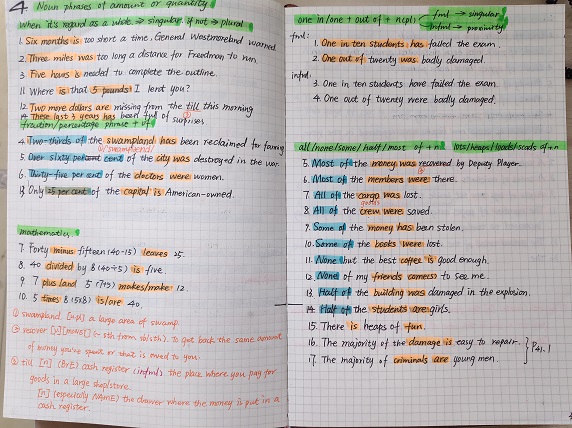 4. Noun phrases of amount or quantity
When it's regard as a whole → singular, if not → plural
1. Six months is too short a time, General Westmoreland warned.
2. Three miles was too long a distance for Freedman to run.
3. Five hours is needed to complete the outline.
11. Where is that 5 pounds I lent you?
12. Two more dollars are missing from the till this morning
14. These last 3 years has been full of surprises.
fraction/percentage phrase + of
4. Two-thirds of the swampland has been reclaimed for farming
5. Over sixty percent of the city was destroyed in the war.
6. Thirty-five per cent of the doctors were women.
8. Only 25 per cent of the capital is American-owned.
mathematics
7. Forty minus fifteen (40-15) leaves 25.
8. 40 divided by 8 (40÷5) is five.
9. 7 plus/and 5 (7+5) makes/make 12.
10. 5 times 8 (5x8) is/are 40.
① swampland [u,pl] a large area of swamp.
② recover [v][money] (~ sth from sb/sth) to get back the same amount
of money you've spent or that is owed to you.
③ till [n] (BrE) cash register (infml) the place where you pay for
goods in a large shop/store.
[n] (especially NAmE) the drawer where the money is put in a
cash register.
one in/one + out of + npl:
fml → singular
infml → proximity
fml:
1. One in ten students has failed the exam.
2. One out of twenty was badly damaged.
infml:
3. One in ten students have failed the exam
4. One out of twenty were badly damaged.
all/none/some/half/most of + n lots/heaps/loads/scads of + n
5. Most of the money was recovered by Deputy Player.
6. Most of the members were there.
7. All of the cargo was lost.
goods
8. All of the crew were saved.
9. Some of the money has been stolen.
10. Some of the books were lost.
11. None but the best coffee is good enough.
12. None of my friends come(s) to see me.
13. Half of the building was damaged in the explosion.
14. Half of the students are girls.
15. There is heaps of fun.
16. The majority of the damage is easy to repair.
17. The majority of criminals are young men.
P41.1